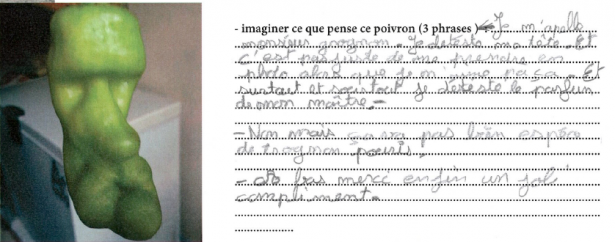 - imaginer ce que pense ce poivron (3 phrases) Je m'apelle
monsieur grognon. Je deteste ma tête. Et
c'est pas juste de me prendre en
photo alors que je m'aime pas. Et
surtout et surtout je déteste le parfum
de mon maître.
- Non mais ça va pas bien espèce
de trognon pouris.
- oh bas merci enfin un joli
compliment.